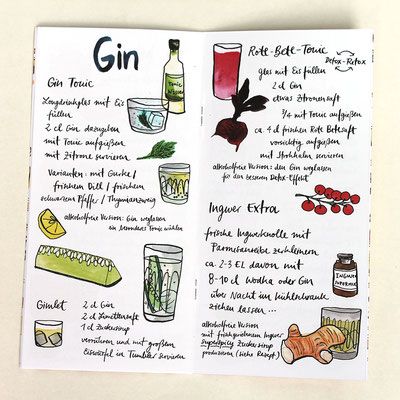 Gin
Gin Tonic
Longdrinkglas mit Eis
füllen
2 cl Gin dazugeben
mit Tonic aufgießen
mit Zitrone servieren
Tonic
Wasser
Varianten: mit Gurke/
frischem Dill/frischem
schwarzem Pfeffer/Thymianzweig
alkoholfreie Version: Gin weglassen
ein besonderes Tonic wählen
Gimlet
2 cl Gin
2 cl Limettensaft
1 cl Zuckersirup
verrühren und mit großem
Eiswürfel in Tumbler servieren
Rote-Bete-Tonic
Detox-Retox
Glas mit Eis füllen
2 cl Gin
etwas Zitronensaft
3/4 mit Tonic aufgießen
ca. 4 cl frischen Rote Betesaft
vorsichtig aufgießen
mit Strohhalm servieren
alkoholfreie Version: den Gin weglassen
für den besseren Detox-Effekt
Ingwer Extra
frische Ingwerknolle mit
Parmesanreibe zerkleinern
ca. 2-3 EL davon mit
8-10 cl Wodka oder Gin
über Nacht im Kühlschrank
ziehen lassen...
INGWER
alkoholfreie Version
mit frischgeriebenem Ingwer
superspicy Zuckersirup
produzieren (siehe Rezept)